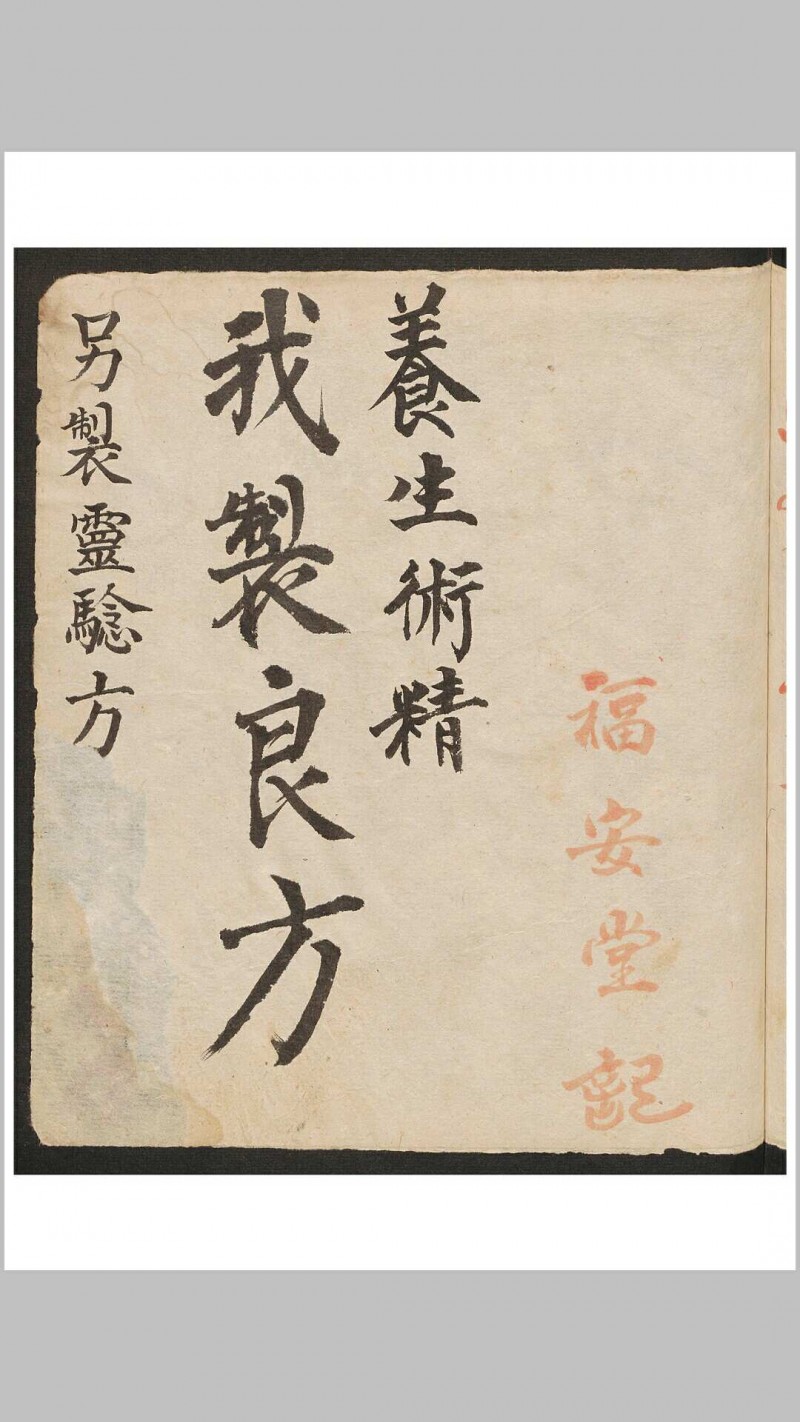 福安堂記
養生術精
我製良方
另製靈騐方